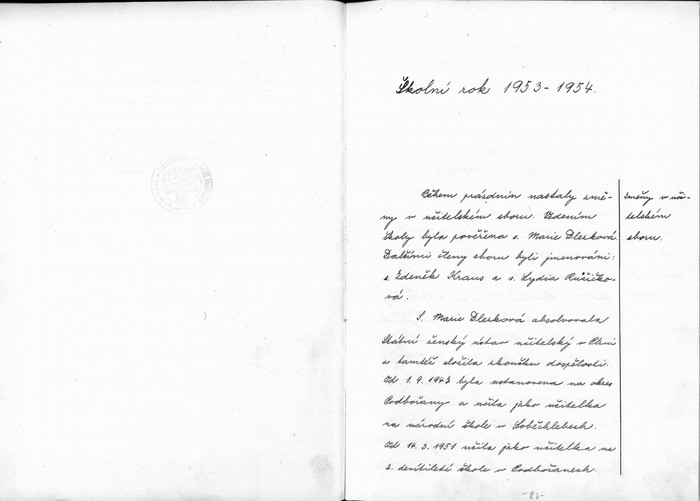 Školní rok 1953-1954.
Během prázdnin nastaly změ-
ny v učitelském sboru. Vedením
školy byla pověřena s. Marie Dlesková.
Dalšími členy sboru byli jmenováni:
s. Zdeněk Kraus a s. Lydia Růžičko-
vá.
S. Marie Dlesková absolvovala
Státní ženský ústav učitelský v Plzni
a tamtéž složila zkoušku dospělosti.
Od 1.9.1947 byla ustanovena na okres
Podbořany a učila jako učitelka
na národní škole v Soběchlebech.
Od 14.3.1951 učila jako učitelka na
s. desítileté škole v Podbořanech.
Změny v uči-
telském
sboru.
-87-